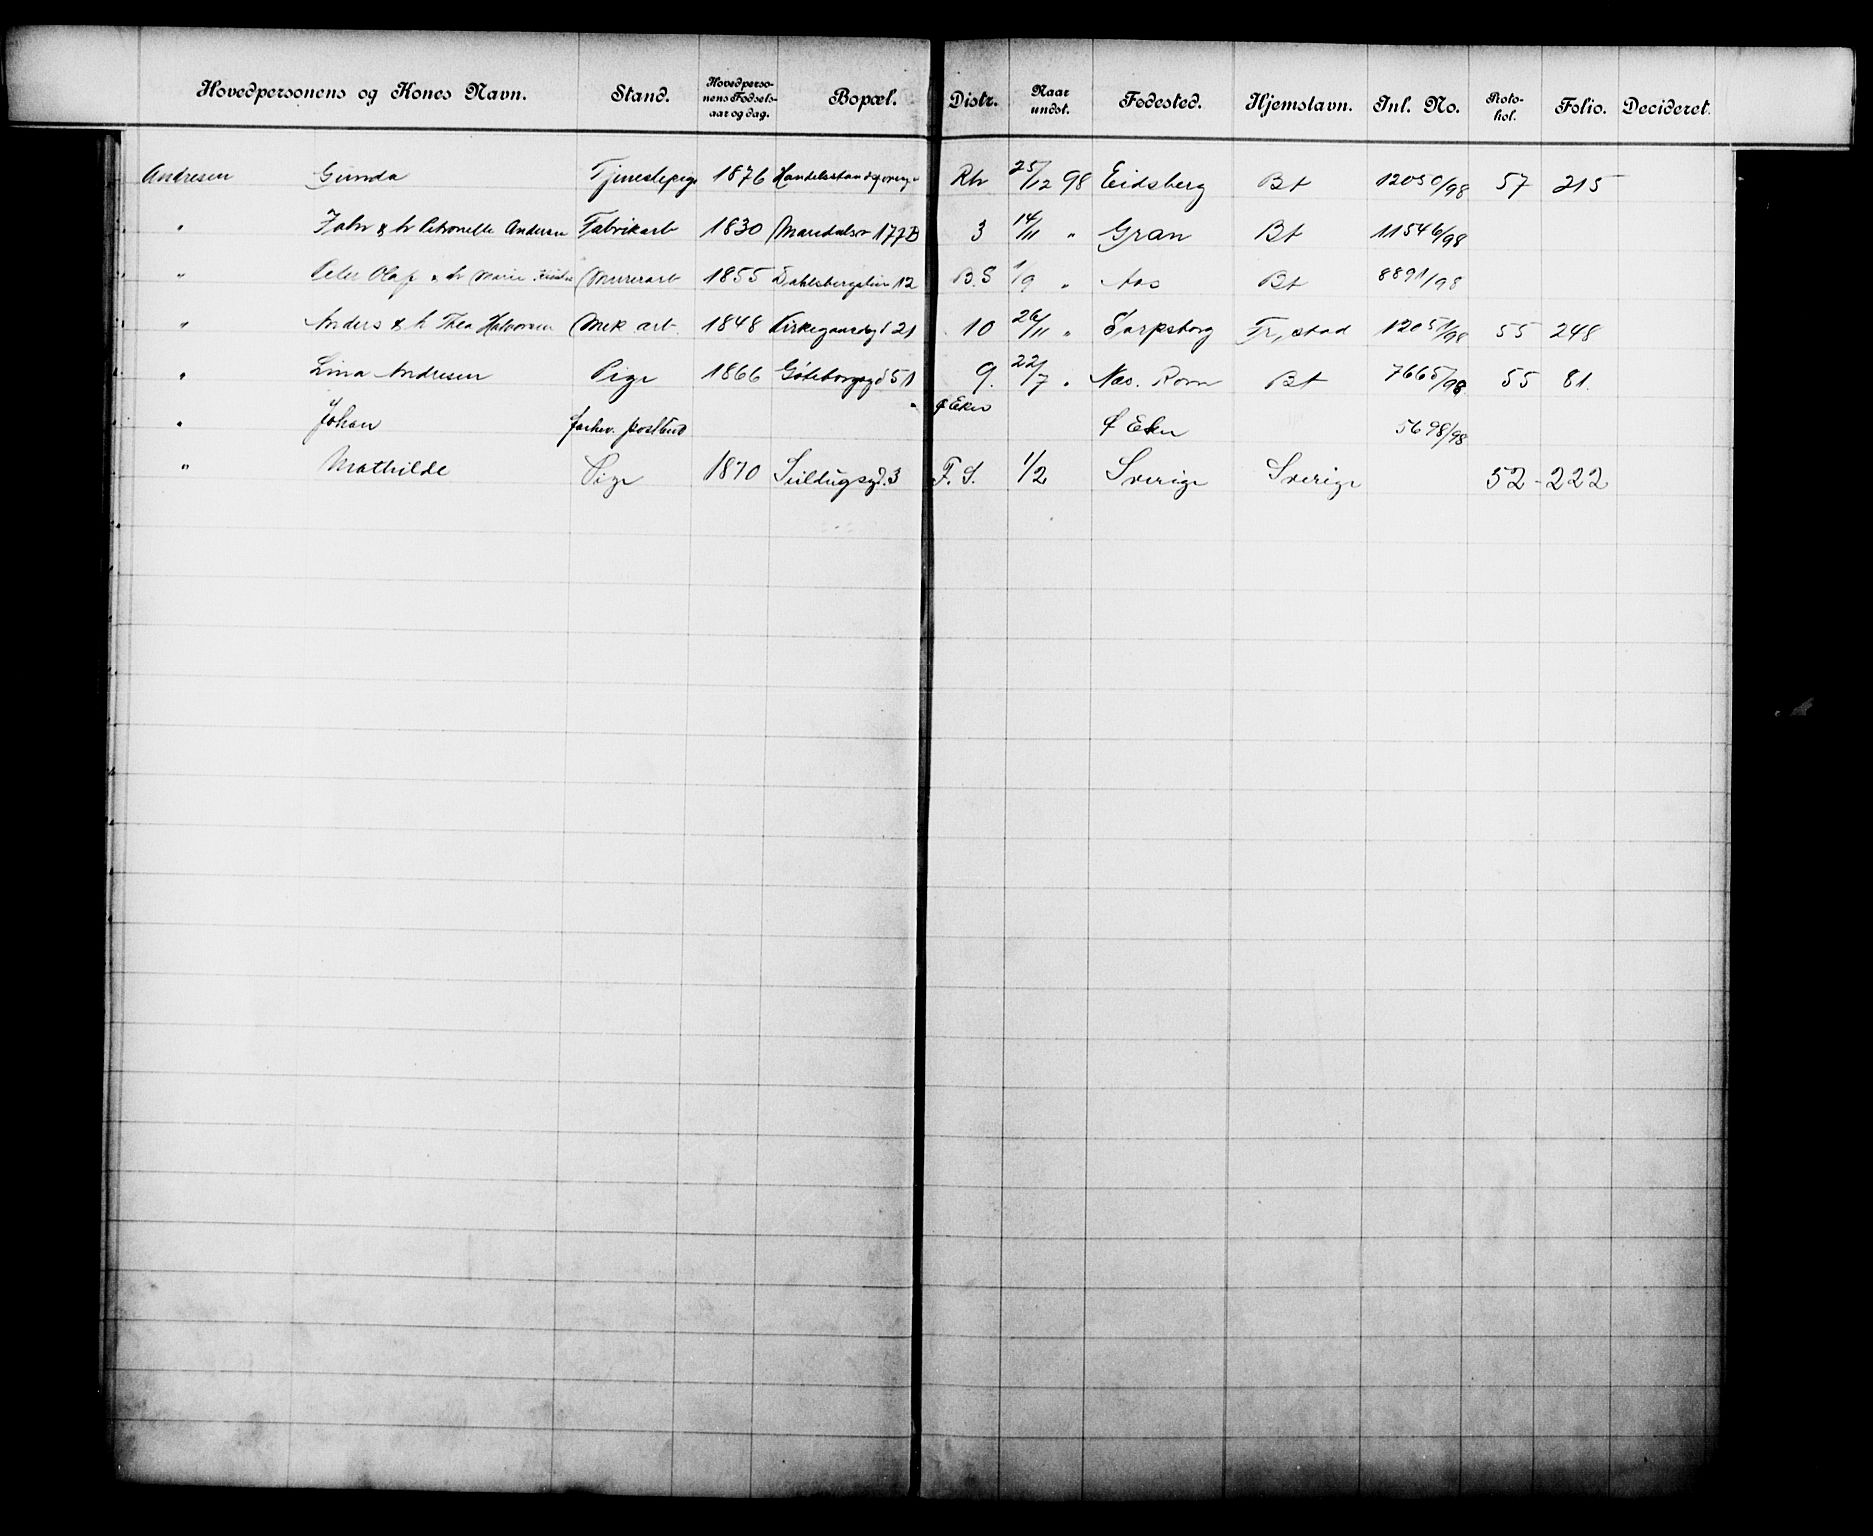 Hovedpersonens og Kones Navn. Stand. Hovedpersonens Fødselsaar og dag. Bopæl. Distr. Naar undst. Fødested. Hjemstavn. Inl. No. Protokol. Folio. Decideret.
Andresen Gunda Tjenestepige 1876 Rh 25/12 98 Eidsberg Bt 12050/98 57 215
" John & h Petronelle Andersen Fabrikarb 1830 Maridalsv 177B 3 14/11 " Gran Bt 11546/98
" Peter Olaf & h Marie Murerarb 1855 Dahlsbergstien 12 B.S 1/9 " Aas Bt 8891/98
" Anders & h Thea Halvorsen Mek arb. 1848 Kirkegaardsgd 21 10 26/11 " Sarpsborg 12051/98 55 248
" Lina Andresen Pige 1866 Göteborggd 51 9. 22/7 " Næs. Rom Bt 7665/98 55 81.
" Johan forhv. postbud " Ø Eker Ø Eker 5698/98
" Mathilde Pige 1870 Seildugsgd. 3 F. S. 1/2 Sverige Sverige 52 - 222